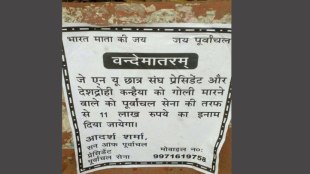 भारत माता की जय जय पूर्वांचल
वन्देमातरम्
जे एन यू छात्र संघ प्रेसिडेंट और
देशद्रोही कन्हैया को गोली मारने
वाले को पूर्वांचल सेना की तरफ
से 11 लाख रुपये का इनाम
दिया जायेगा।
आदर्श शर्मा,
सन ऑफ पूर्वांचल
प्रेसिडेंट
पूर्वांचल सेना
मोबाइल न०:
9971619758